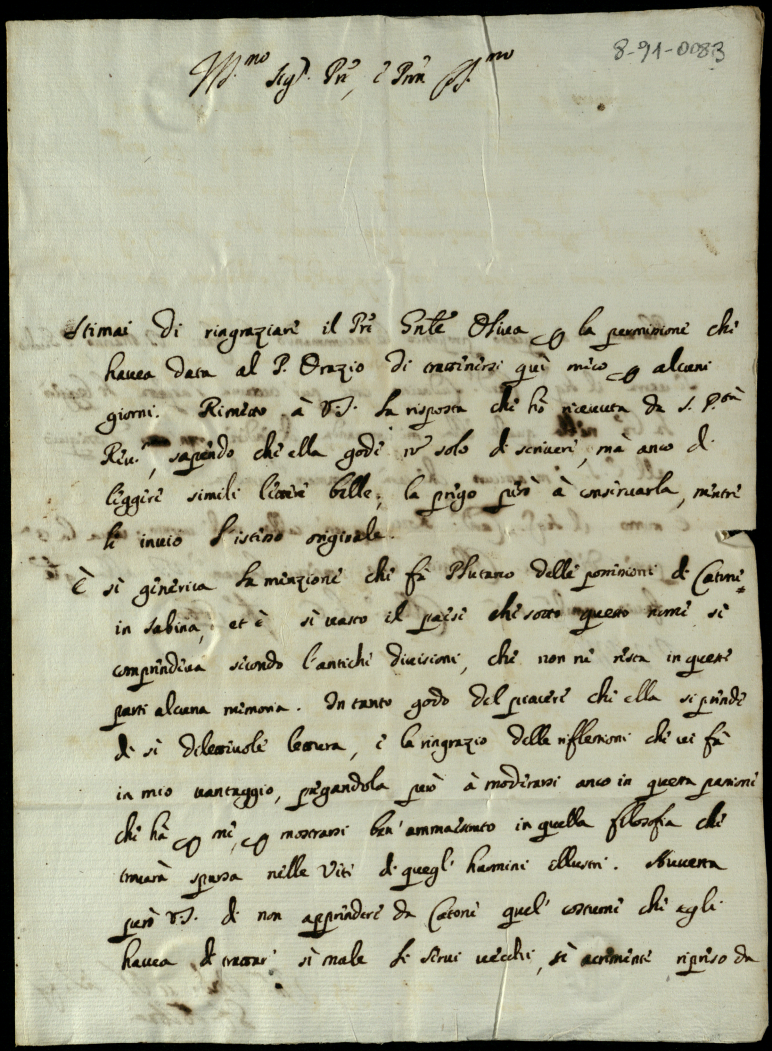 8-91-0083
Ill.mo Sig.r Prõ, e Prõn
Stimai di ringraziare il Prẽ Gnle Oliva per la permissione che
havea data al P. Orazio di trattenersi quì meco per alcuni
giorni. Rimetto à V.S. la risposta che hò ricevuta da S. P.tà
Rev.ma, sapendo che ella gode nõ solo di scrivere, mà anco di
leggere simili lettere belle; la prego però à conservarla, mentre
le invio l'istesso originale.
È si generica la menzione che fà Plutarco delle possessioni di Catone
in Sabina, et è sì vasto il paese che sotto questo nome si
comprendeva secondo l'antiche divisioni, che non ne resta in queste
parti alcuna memoria. In tanto godo del piacere che ella si prende
di sì dilettevole lettura, e la ringrazio delle riflessioni che vi fà
in mio vantaggio, pregandola però à moderarsi anco in questa passione
che hà per me, per mostrarsi ben' ammaestrato in quella filosofia che
trovarà sparsa nelle Vite di quegl' huomini illustri. Avverta
però V.S. di non apprendere da Catone quel' costume che egli
havea di trattar' sì male li servi vecchi, sì acremente ripreso da